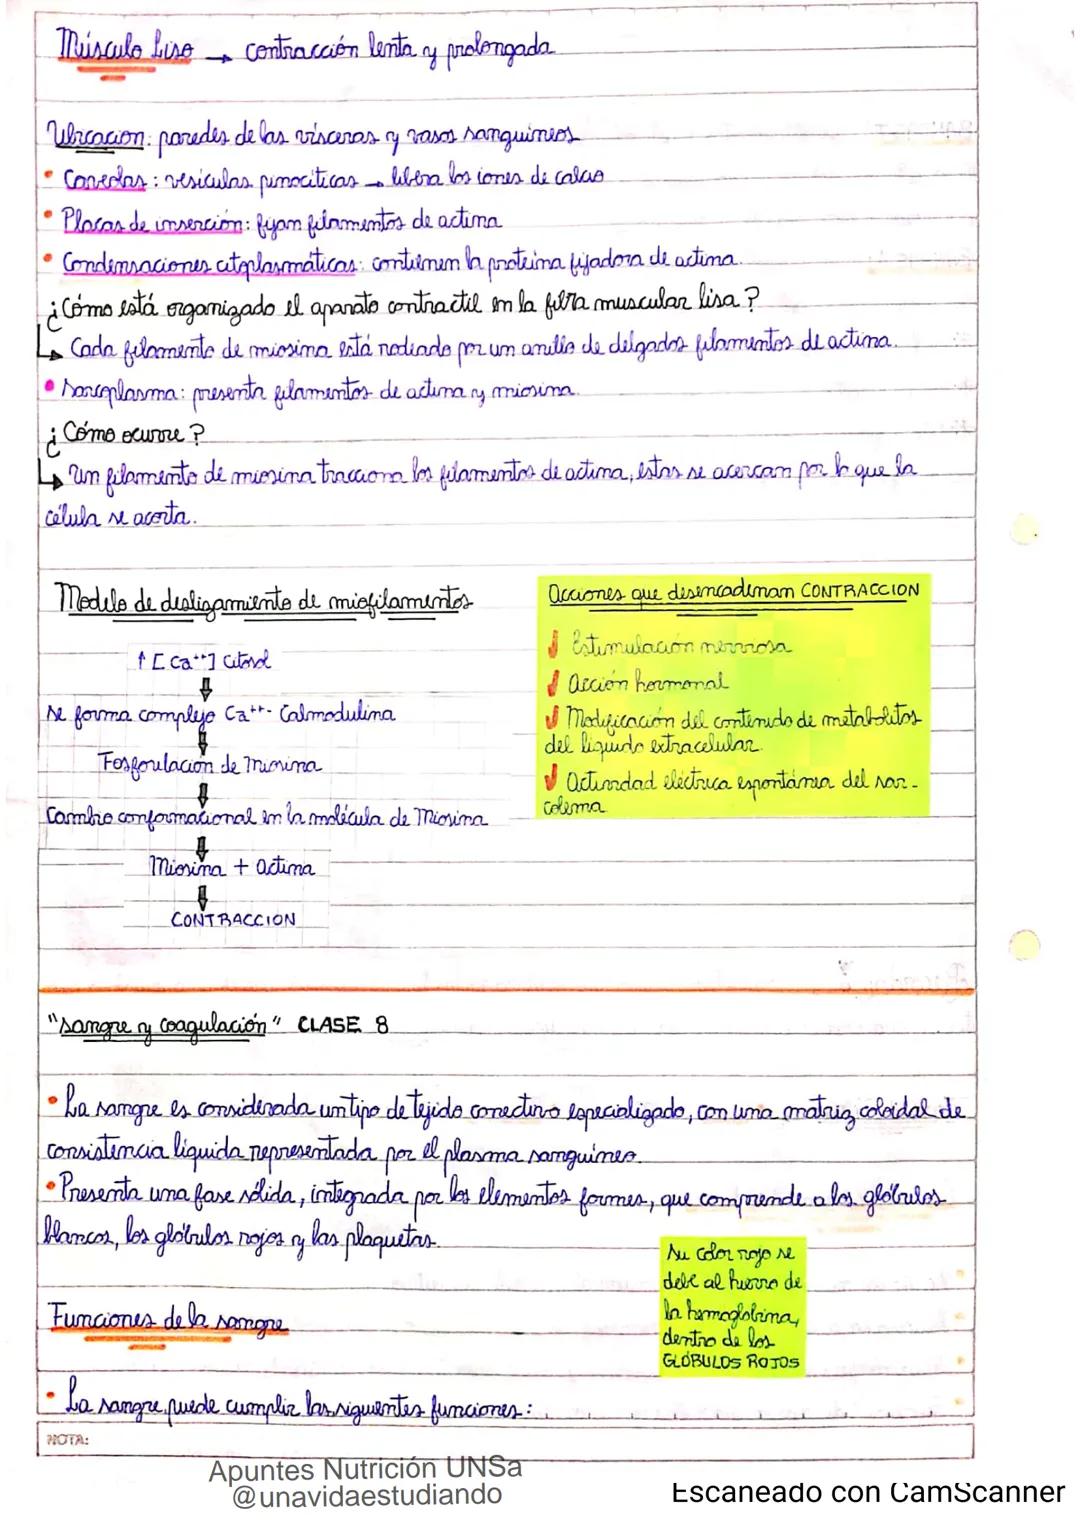 Músculo Liso → contracción lenta y prolongada
Ubicacion: paredes de las vísceras y vasos sanguíneos
• Caveolas: vesículas pinocíticas → libera los iones de calcio
• Placas de inserción: fijan filamentos de actina
• Condensaciones citoplasmáticas: contienen la proteína fijadora de actina.
¿Cómo está organizado el aparato contractil en la fibra muscular lisa?
↳ Cada filamento de miosina está rodeado por un anillo de delgados filamentos de actina.
• Sarcoplasma: presenta filamentos de actina y miosina.
¿Cómo ocurre?
↳ Un filamento de miosina tracciona los filamentos de actina, estas se acercan por lo que la
célula se acorta.
Modelo de deslizamiento de miofilamentos
↑ [Ca⁺⁺] Citosol
↓
Se forma complejo Ca⁺⁺- Calmodulina
↓
Fosforilación de Miosina
↓
Cambio conformacional en la molécula de Miosina
↓
Miosina + actina
↓
CONTRACCION
Acciones que desencadenan CONTRACCION
✓ Estimulación nerviosa
✓ Acción hormonal
✓ Modificación del contenido de metabolitos
del líquido extracelular.
✓ Actividad eléctrica espontánea del sar-
colema
"Sangre y coagulación" CLASE 8
• La sangre es considerada un tipo de tejido conectivo especializado, con una matriz coloidal de
consistencia líquida representada por el plasma sanguíneo.
• Presenta una fase sólida, integrada por los elementos formes, que comprende a los glóbulos
blancos, los glóbulos rojos y las plaquetas.
Su color rojo se
debe al hierro de
la hemoglobina,
dentro de los
GLÓBULOS ROJOS
Funciones de la sangre
• La sangre puede cumplir las siguientes funciones:
NOTA:
Apuntes Nutrición UNSa
@unavidaestudiando
Escaneado con CamScanner